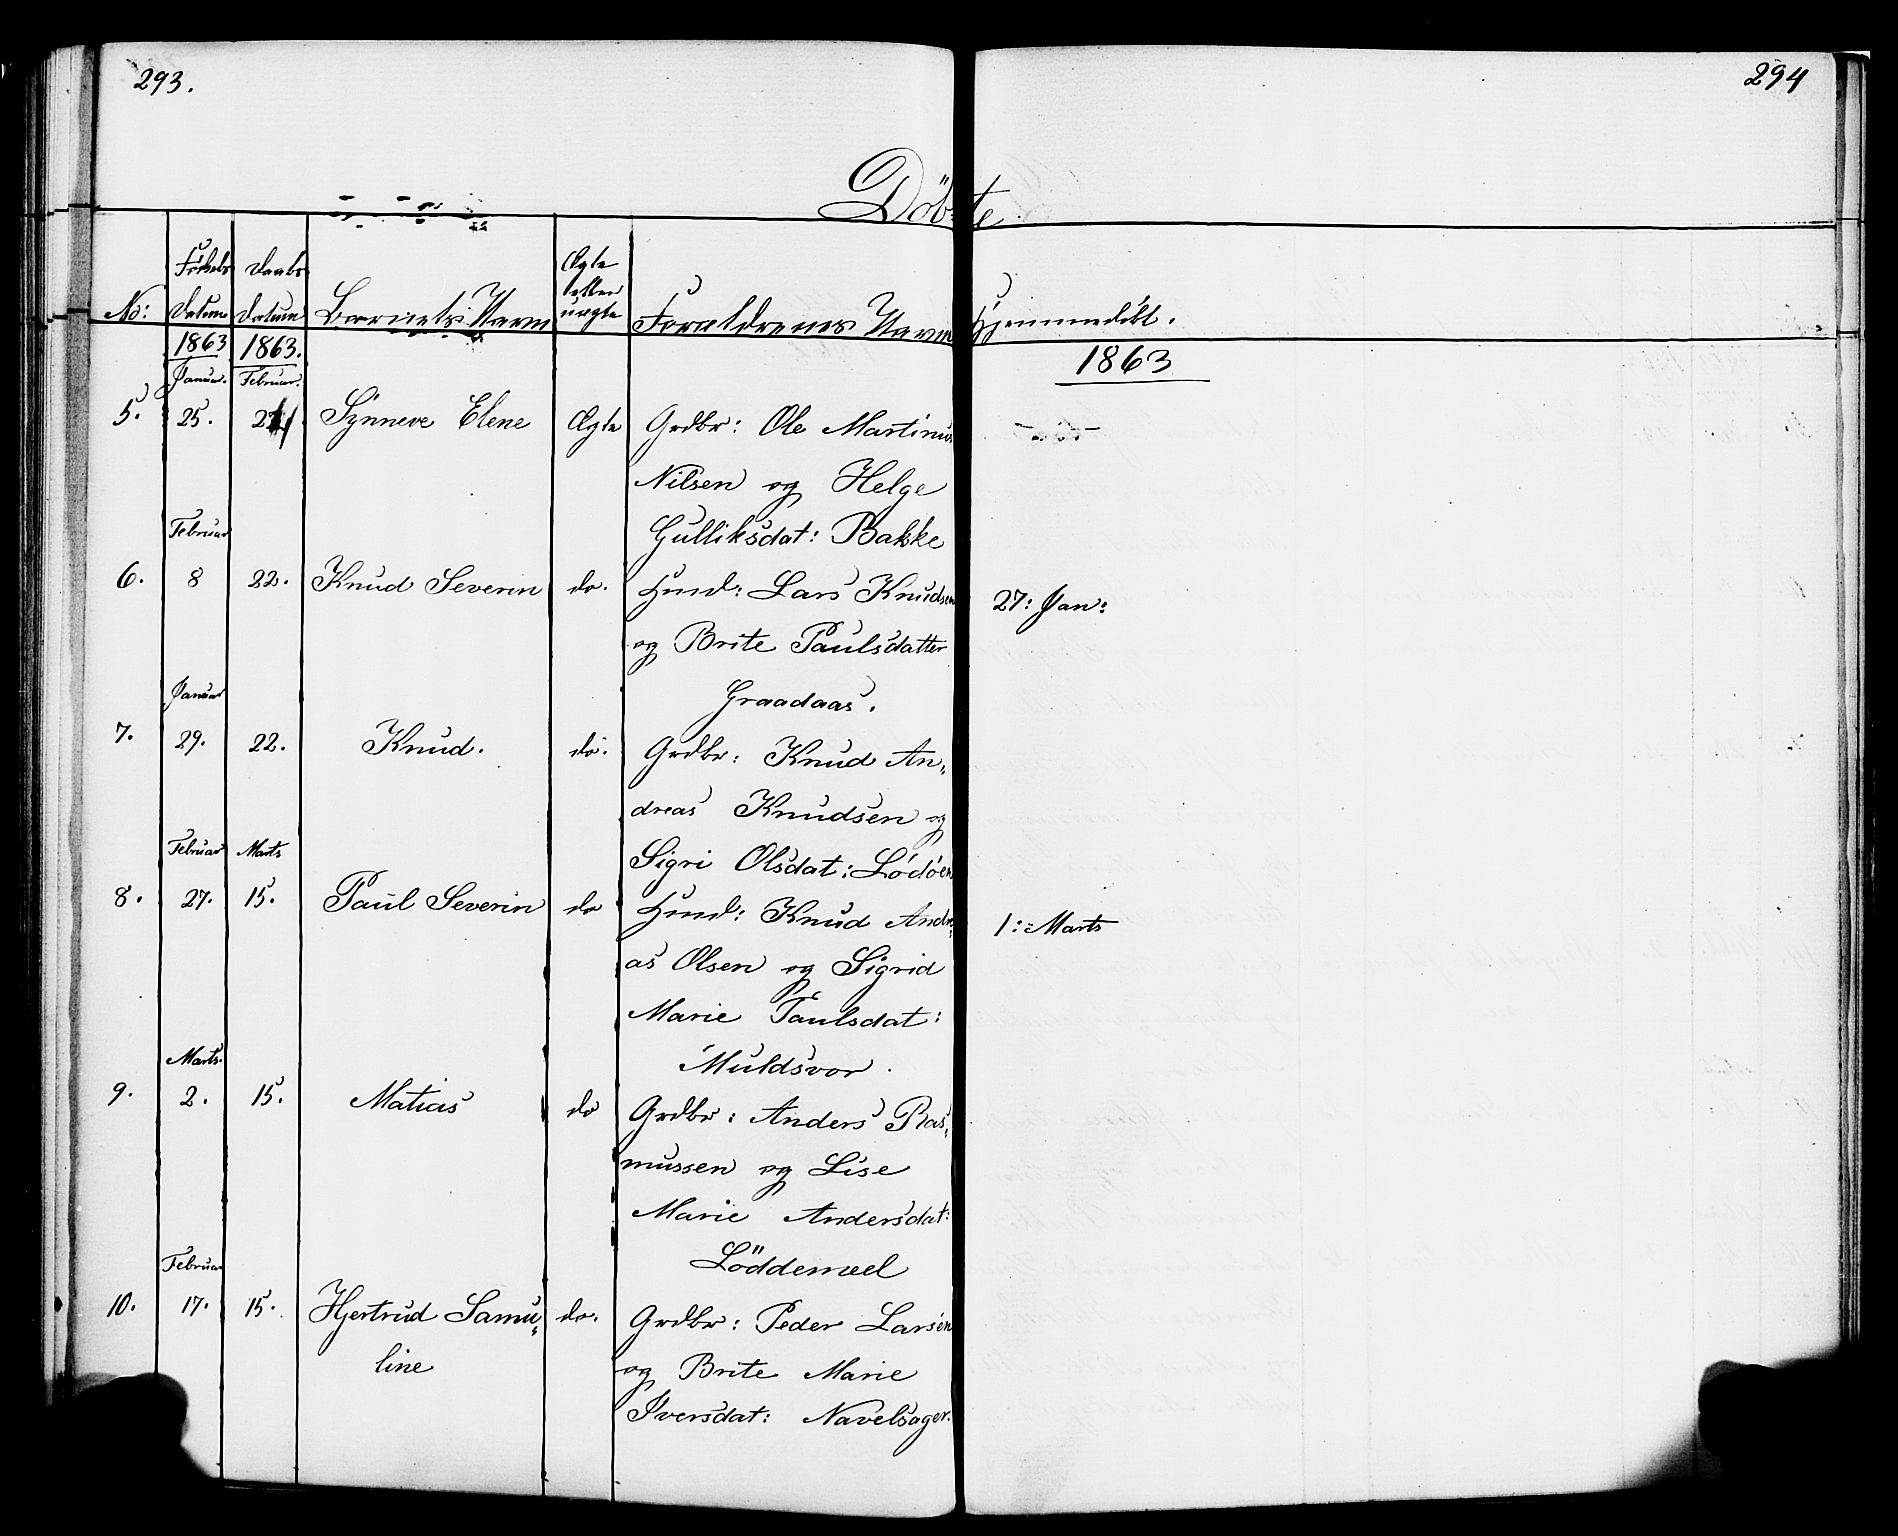 293.
294
Döbte
No: Fødsels Datum Daabs Datum Barnets Navn Ægte eller uægte Forældrenes Navn Hjemmedøbt.
1863 1863. 1863
Januar. Februar.
5. 25. Synneve Elene Ægte Grdbr: Ole Martinus
Nilsen og Helge
Gulliksdat: Bakke
Februar
6. 8 22. Knud Severin do. Husmd: Lars Knudsen 27: Jan:
og Brite Paulsdatter
Graadaas.
Januar
7. 29. 22. Knud. do. Grdbr: Knud An„
dreas Knudsen og
Sigri Olsdat: Lødøen
Februar Marts
8. 27. 15. Paul Severin do Husmd: Knud Andre„ 1: Marts
as Olsen og Sigrid
Marie Paulsdat:
Muldsvor.
Marts.
9. 2. 15. Matias do Grdbr: Anders Ras„
mussen og Lise
Marie Andersdat:
Löddemæl
Februar
10. 17. 15. Hjertrud Samu„ do. Grdbr: Peder Larsen
line og Brite Marie
Iversdat: Navelsager.